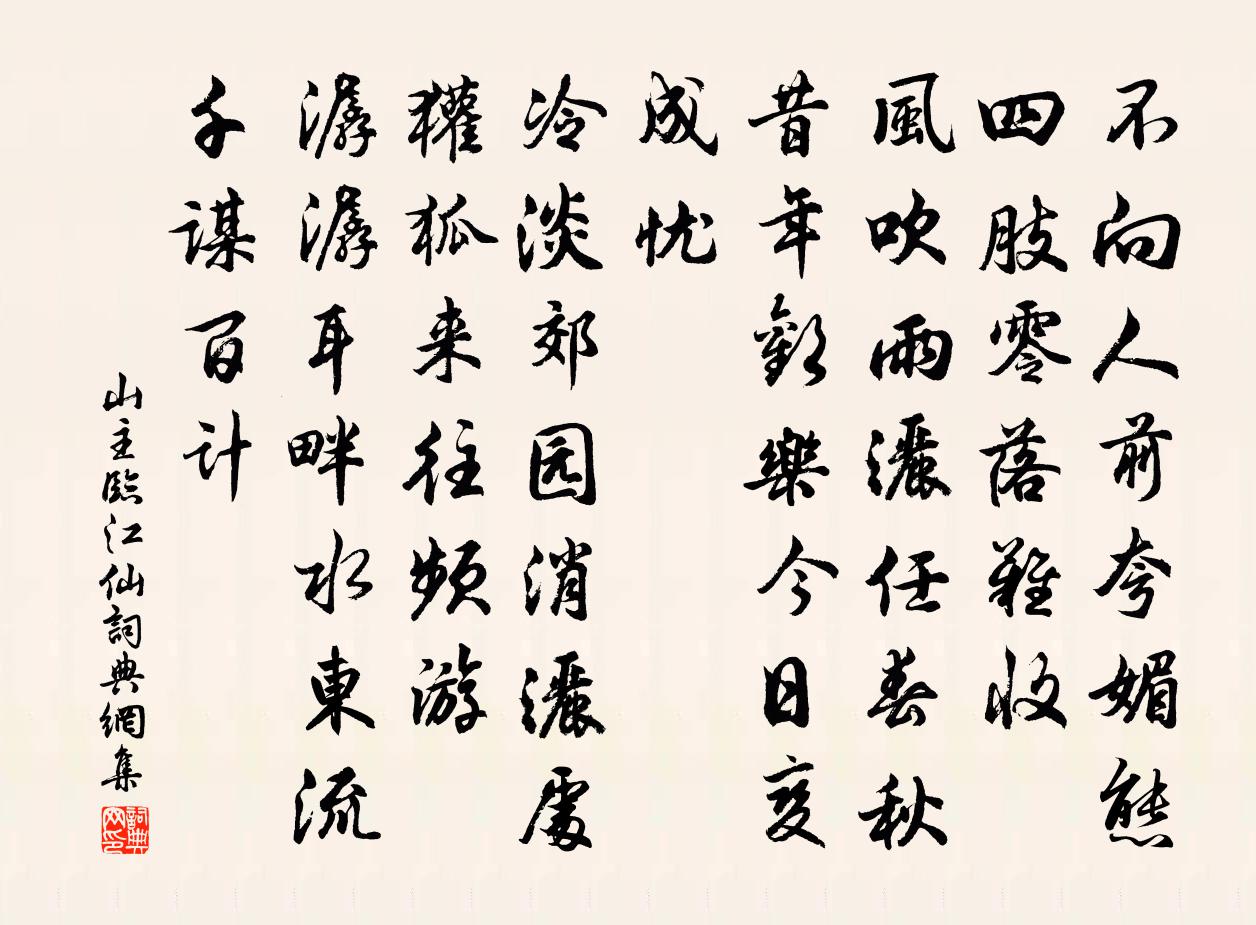 不向人前夸媚態
四肢零落難收
風吹雨灑任春秋
昔年歡樂今日变
成忧
冷淡郊园消灑處
獾狐来往頻游
潺潺耳畔水東流
千谋百计
山主臨江仙詞典網集
詞典网印